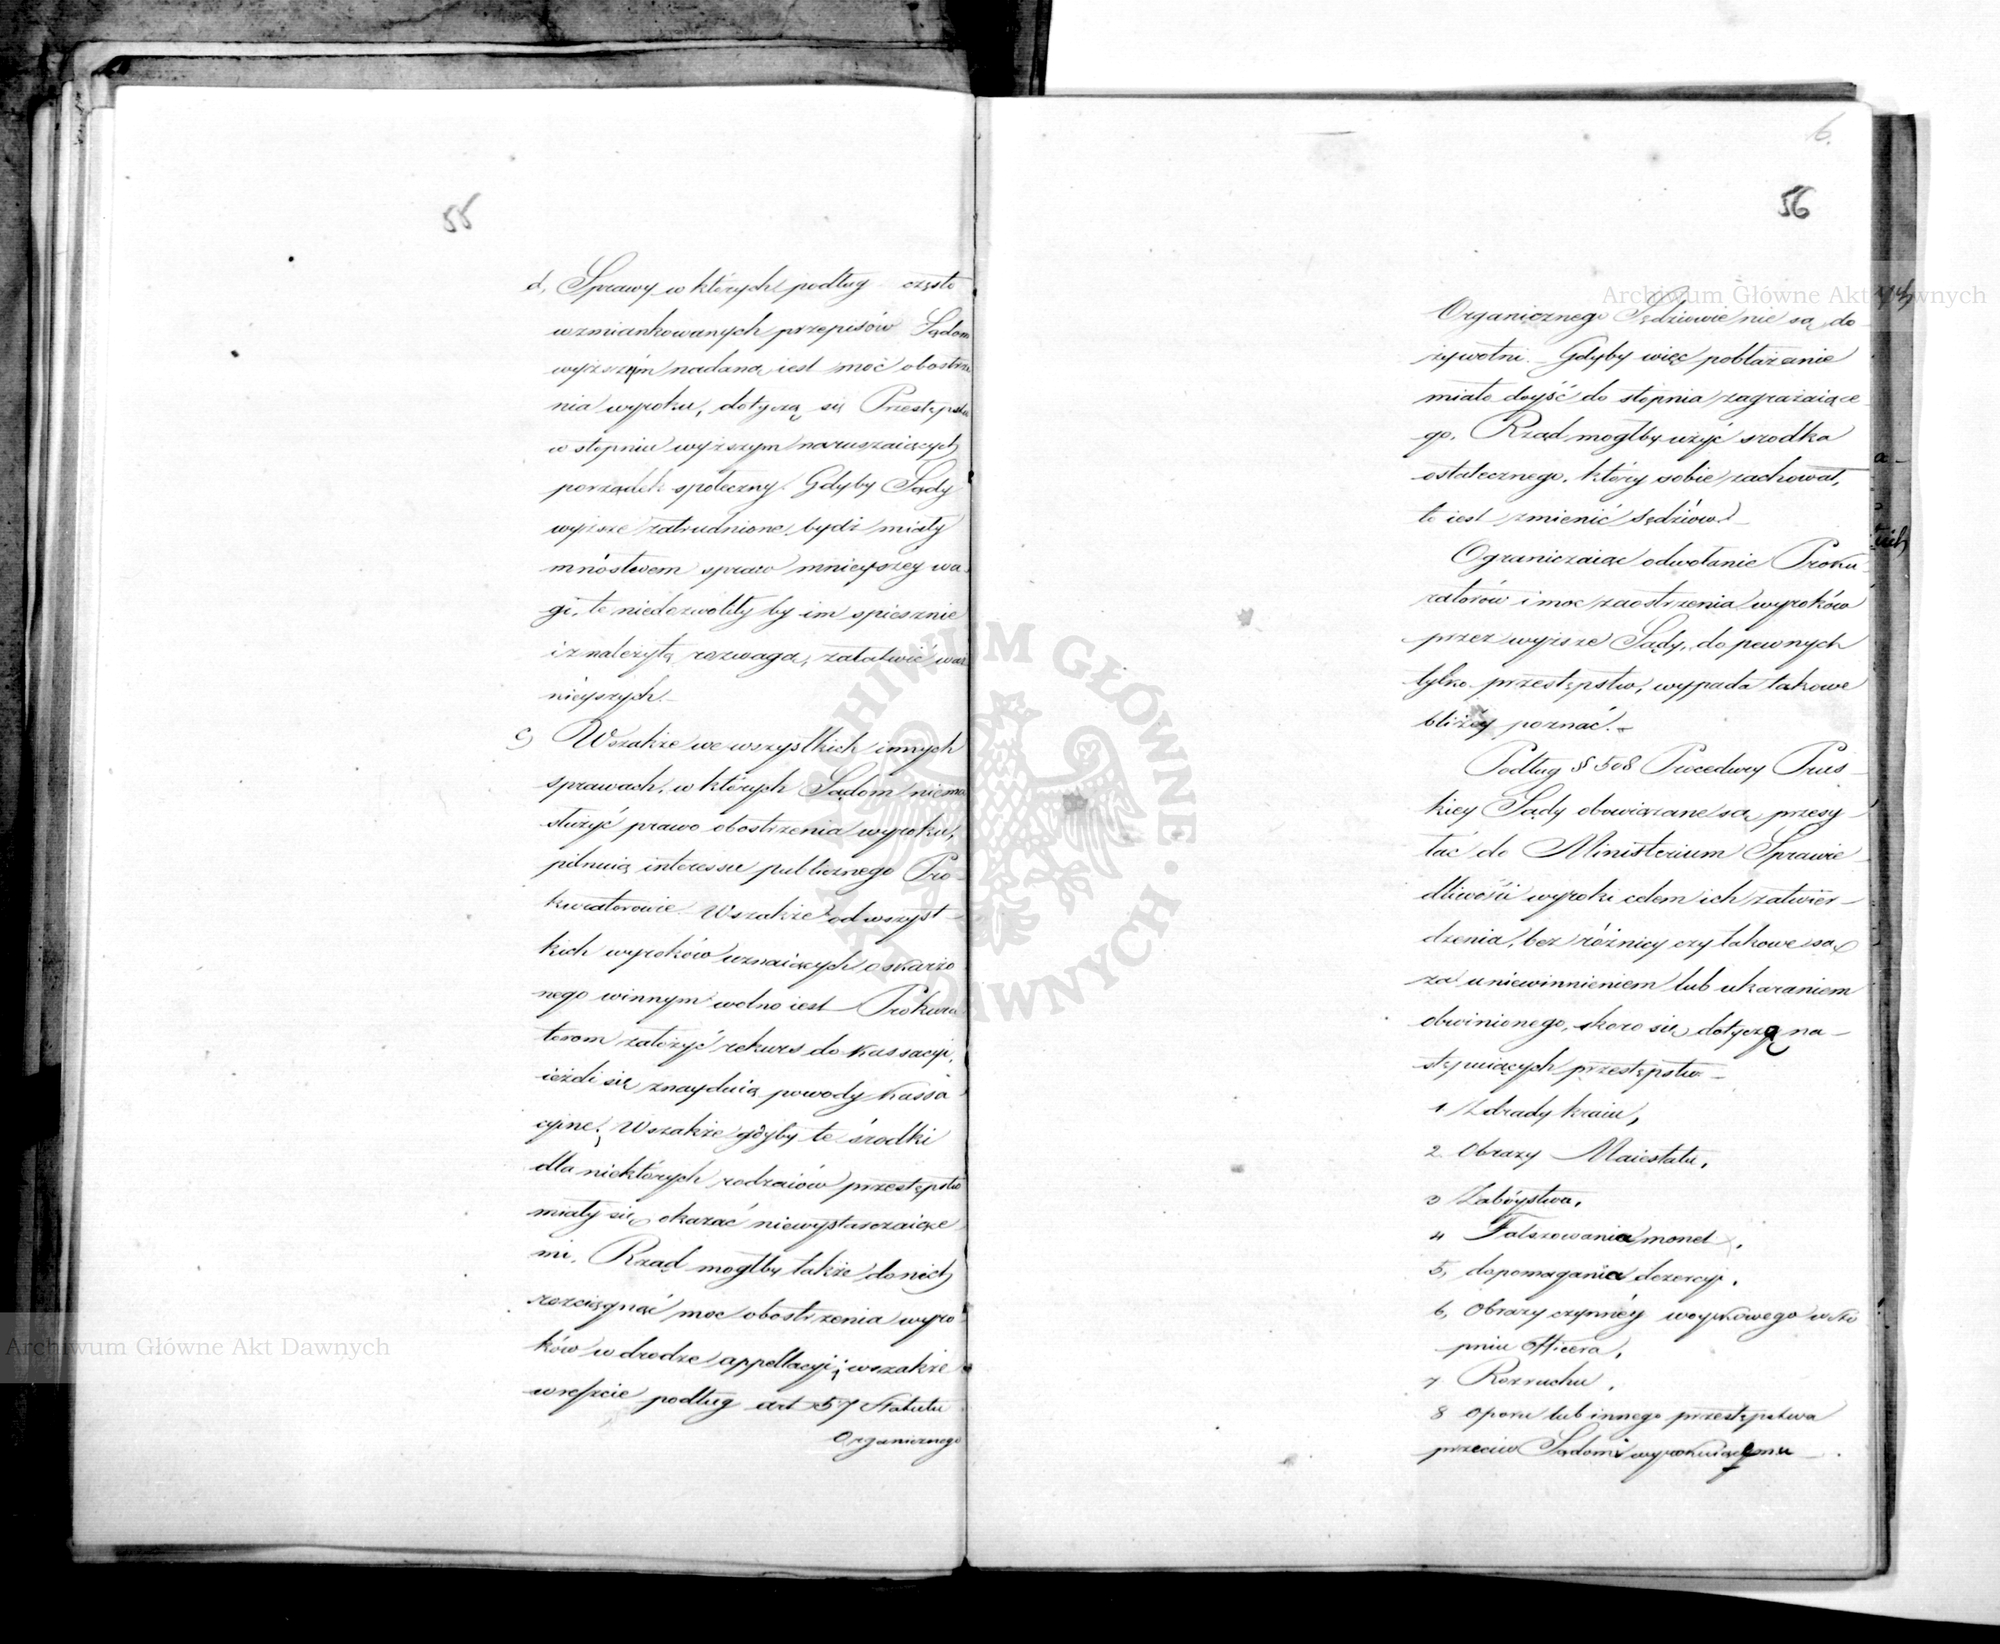 55
d, Sprawy w których podług często
wzmiankowanych przepisów Sądom
wyższym nadana iest moc obostrze
nia wyroku, dotyczą się Przestępstw
w stopniu wyższym naruszaiących
porządek społeczny. Gdyby Sądy
wyższe zatrudnione bydź miały
mnóstwem spraw mnieyszey wa
gi, te niedozwoliły by im spiesznie
i z należytą rozwagą, załatwić waż
nieyszych.-
e) Wszakże we wszystkich innych
sprawach, w których Sądom niema
służyć prawo obostrzenia wyroku,
pilnuią interessu publicznego Pro-
kuratorowie. Wszakże od wszyst-
kich wyroków uznaiących oskarżo
nego winnym wolno iest Prokura
torom założyć rekurs do Kassacyi,
ieżeli się znayduią powody Kassa
cyine; Wszakże gdyby te środki
dla niektórych rodzaiów przestępstw
miały się okazać niewystarczaiące
mi, Rząd mogłby także do nich
rozciągnąć moc obostrzenia wyro
ków w drodze appellacyi; wszakże
wreszcie podług art 57 Statutu
Organicznego
6.
56
Organicznego Sędziowie nie są do-
żywotni. Gdyby więc pobłażanie
miało doyść do stopnia zagrażaiące
go, Rząd mogłby użyć srodka
ostatecznego, który sobie zachował,
to iest zmienić Sędziów.-
Ograniczaiąc odwołanie Proku-
ratorów i moc zaostrzenia wyroków
przez wyższe Sądy, do pewnych
tylko przestępstw, wypada takowe
bliżéy poznać.-
Podług § 508 Procedury Prus-
kiey Sądy obowiązane są przesy-
łać do Ministerium Sprawie-
dliwości wyroki celem ich zatwier-
dzenia, bez różnicy czy takowe są
za uniewinnieniem lub ukaraniem
obwinionego, skoro się dotyczą na-
stępuiących przestępstw.-
1 Zdrady kraiu,
2 Obrazy Maiestatu,
3 Zabóystwa,
4 Fałszowania monet,
5, dopomagania dezercyi,
6, Obrazy czynnéy woyskowego w sto
pniu Officera,
7 Rozruchu,
8 Oporu lub innego przestępstwa
przeciw Sądowi wyrokuiącemu
Archiwum Główne Akt Dawnych
Archiwum Główne Akt Dawnych
ARCHIWUM GŁÓWNE AKT DAWNYCH